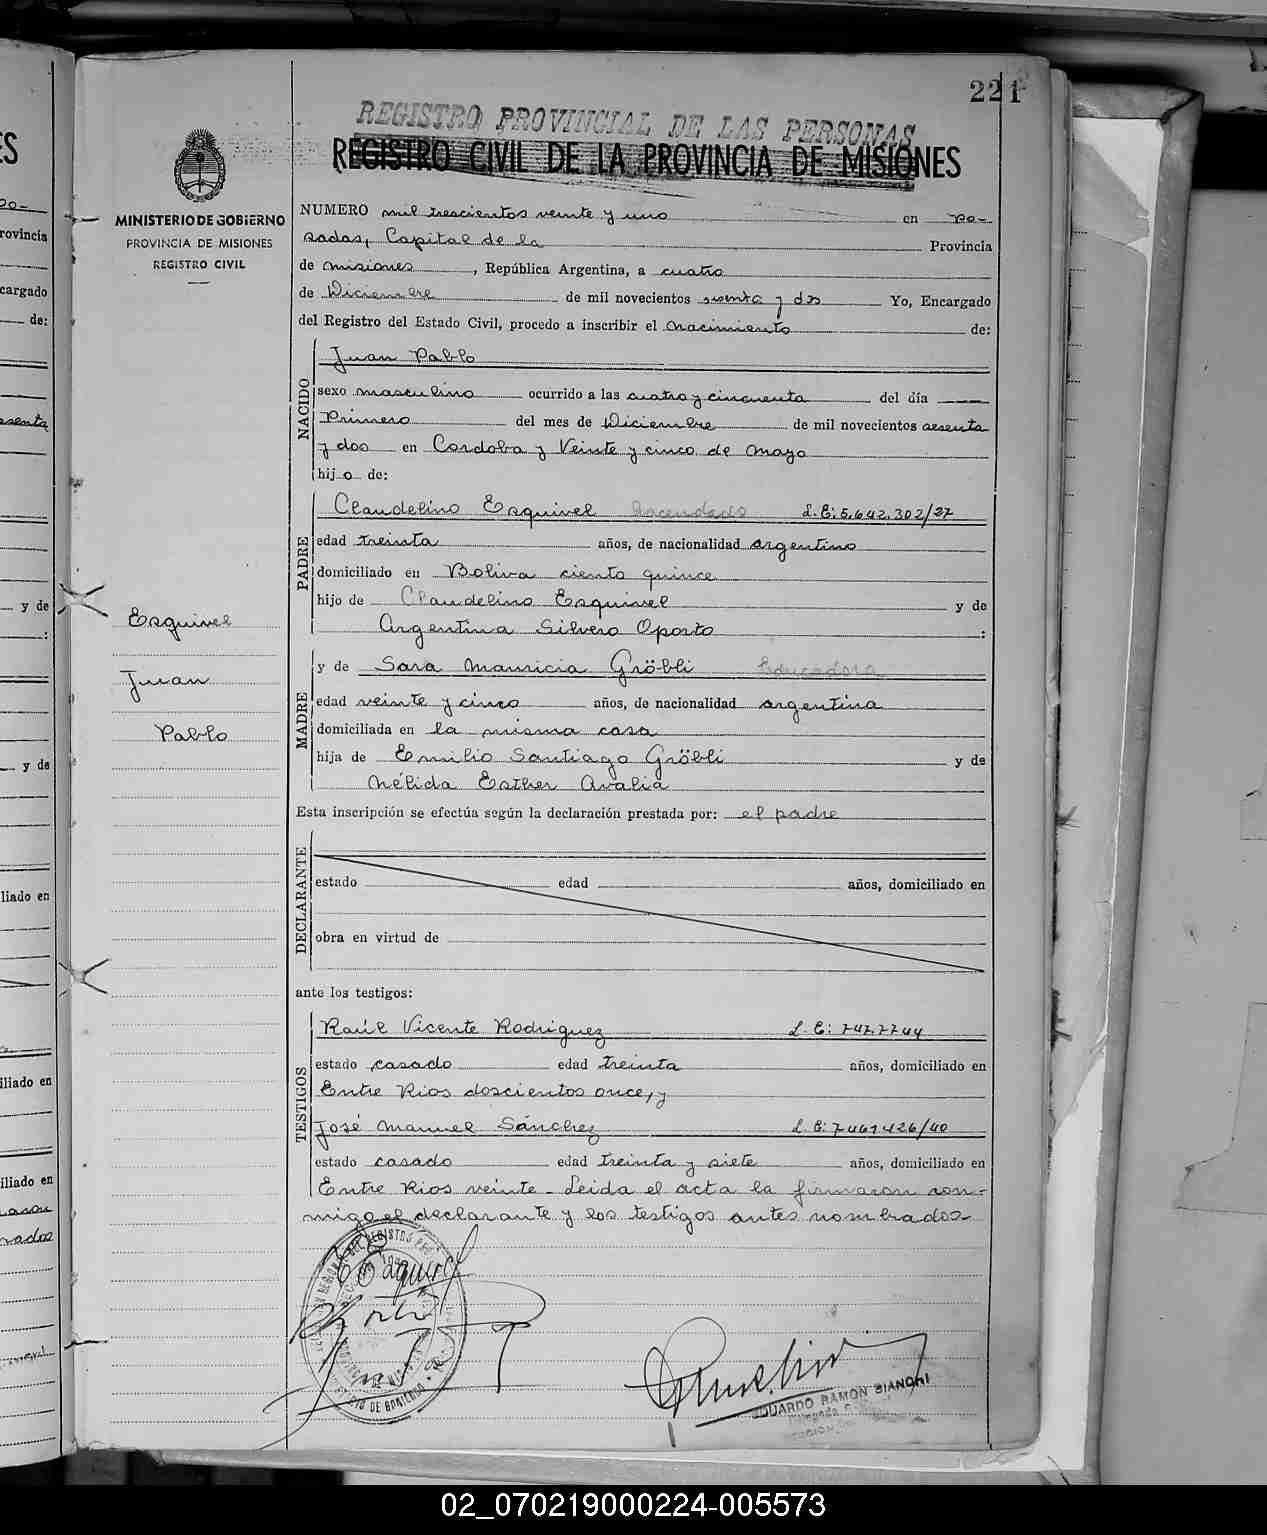 221
REGISTRO PROVINCIAL DE LAS PERSONAS
REGISTRO CIVIL DE LA PROVINCIA DE MISIONES
MINISTERIO DE GOBIERNO
PROVINCIA DE MISIONES
REGISTRO CIVIL
NUMERO mil trescientos veinte y uno en Po-
sadas, Capital de la Provincia
de misiones, República Argentina, a cuatro
de Diciembre de mil novecientos sesenta y dos Yo, Encargado
del Registro del Estado Civil, procedo a inscribir el nacimiento de:
NACIDO
Juan Pablo
sexo masculino ocurrido a las cuatro y cincuenta del día
Primero del mes de Diciembre de mil novecientos sesenta
y dos en Cordoba y Veinte y cinco de mayo
hijo de:
PADRE
Claudelino Esquivel hacendado L.E: 5.642.302/37
edad treinta años, de nacionalidad argentino
domiciliado en Boliva ciento quince
hijo de Claudelino Esquivel y de
Argentina Silvero Oporto :
Esquivel
Juan
Pablo
MADRE
y de Sara Mauricia Gröbli Educadora
edad veinte y cinco años, de nacionalidad argentina
domiciliada en la misma casa
hija de Emilio Santiago Gröbli y de
Nélida Esther Avalia
Esta inscripción se efectúa según la declaración prestada por: el padre
DECLARANTE
estado edad años, domiciliado en
obra en virtud de
ante los testigos:
TESTIGOS
Raúl Vicente Rodriguez L.E: 747.7744
estado casado edad treinta años, domiciliado en
Entre Rios doscientos once, y
José Manuel Sánchez L.E: 7461426/40
estado casado edad treinta y siete años, domiciliado en
Entre Rios veinte - Leida el acta la firmaron con-
migo el declarante y los testigos antes nombrados
EDUARDO RAMON BIANCHI
02_070219000224-005573